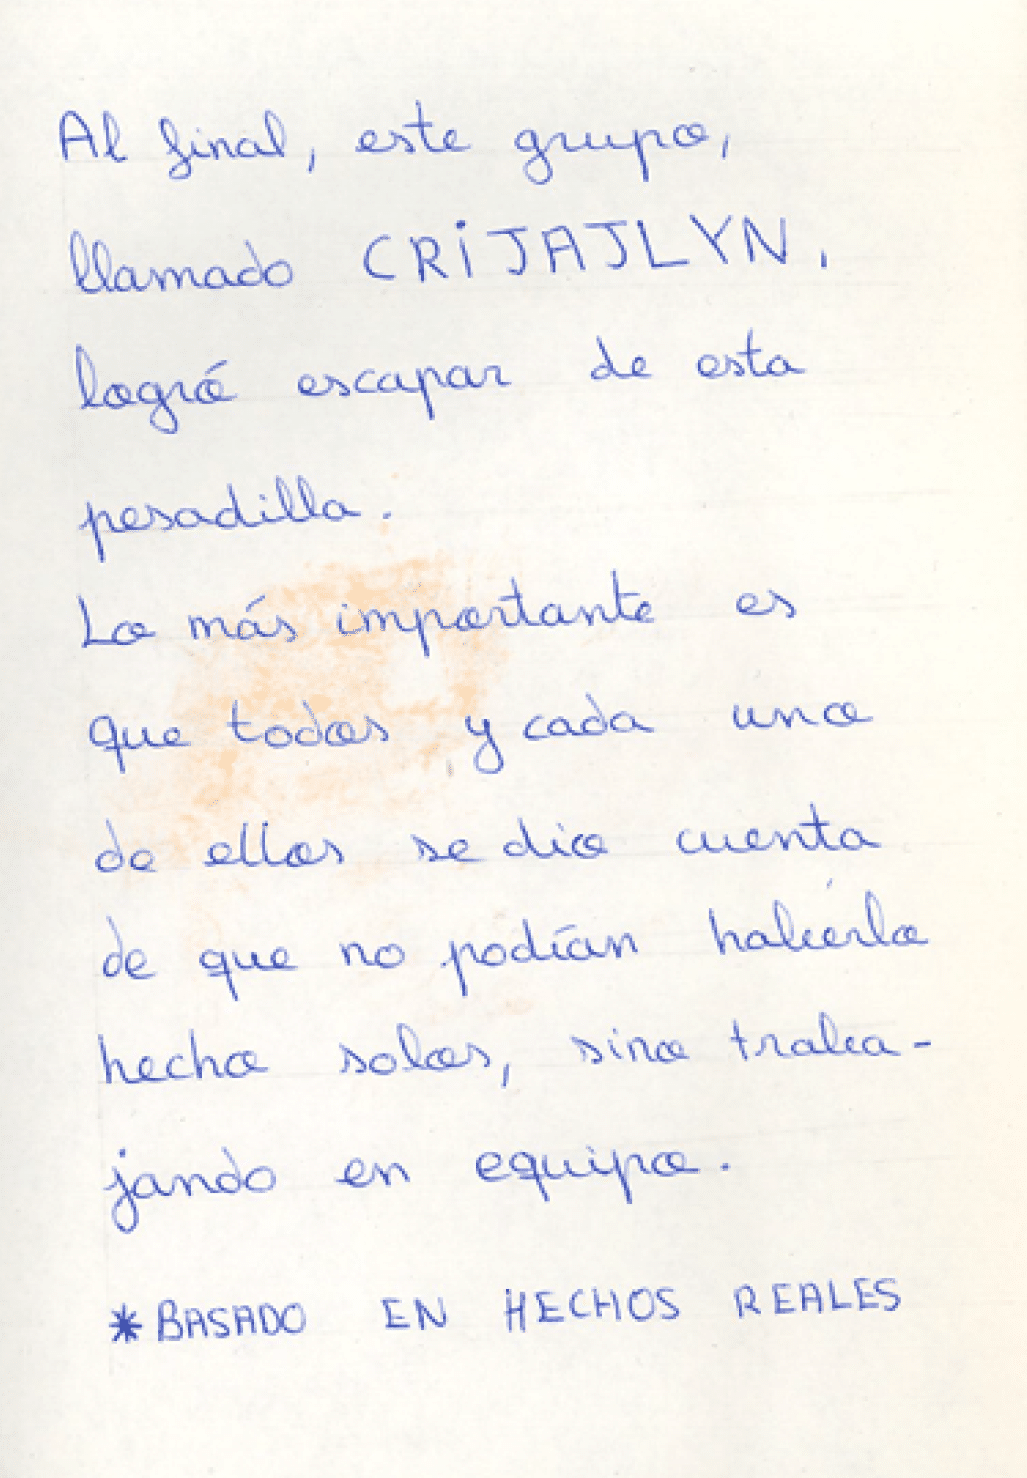 Al final, este grupo,
llamado CRiJAJLYN,
logró escapar de esta
pesadilla.
Lo más importante es
que todos y cada uno
de ellos se dio cuenta
de que no podían habérlo
hecho solos, sino traba-
jando en equipo.
*BASADO EN HECHOS REALES